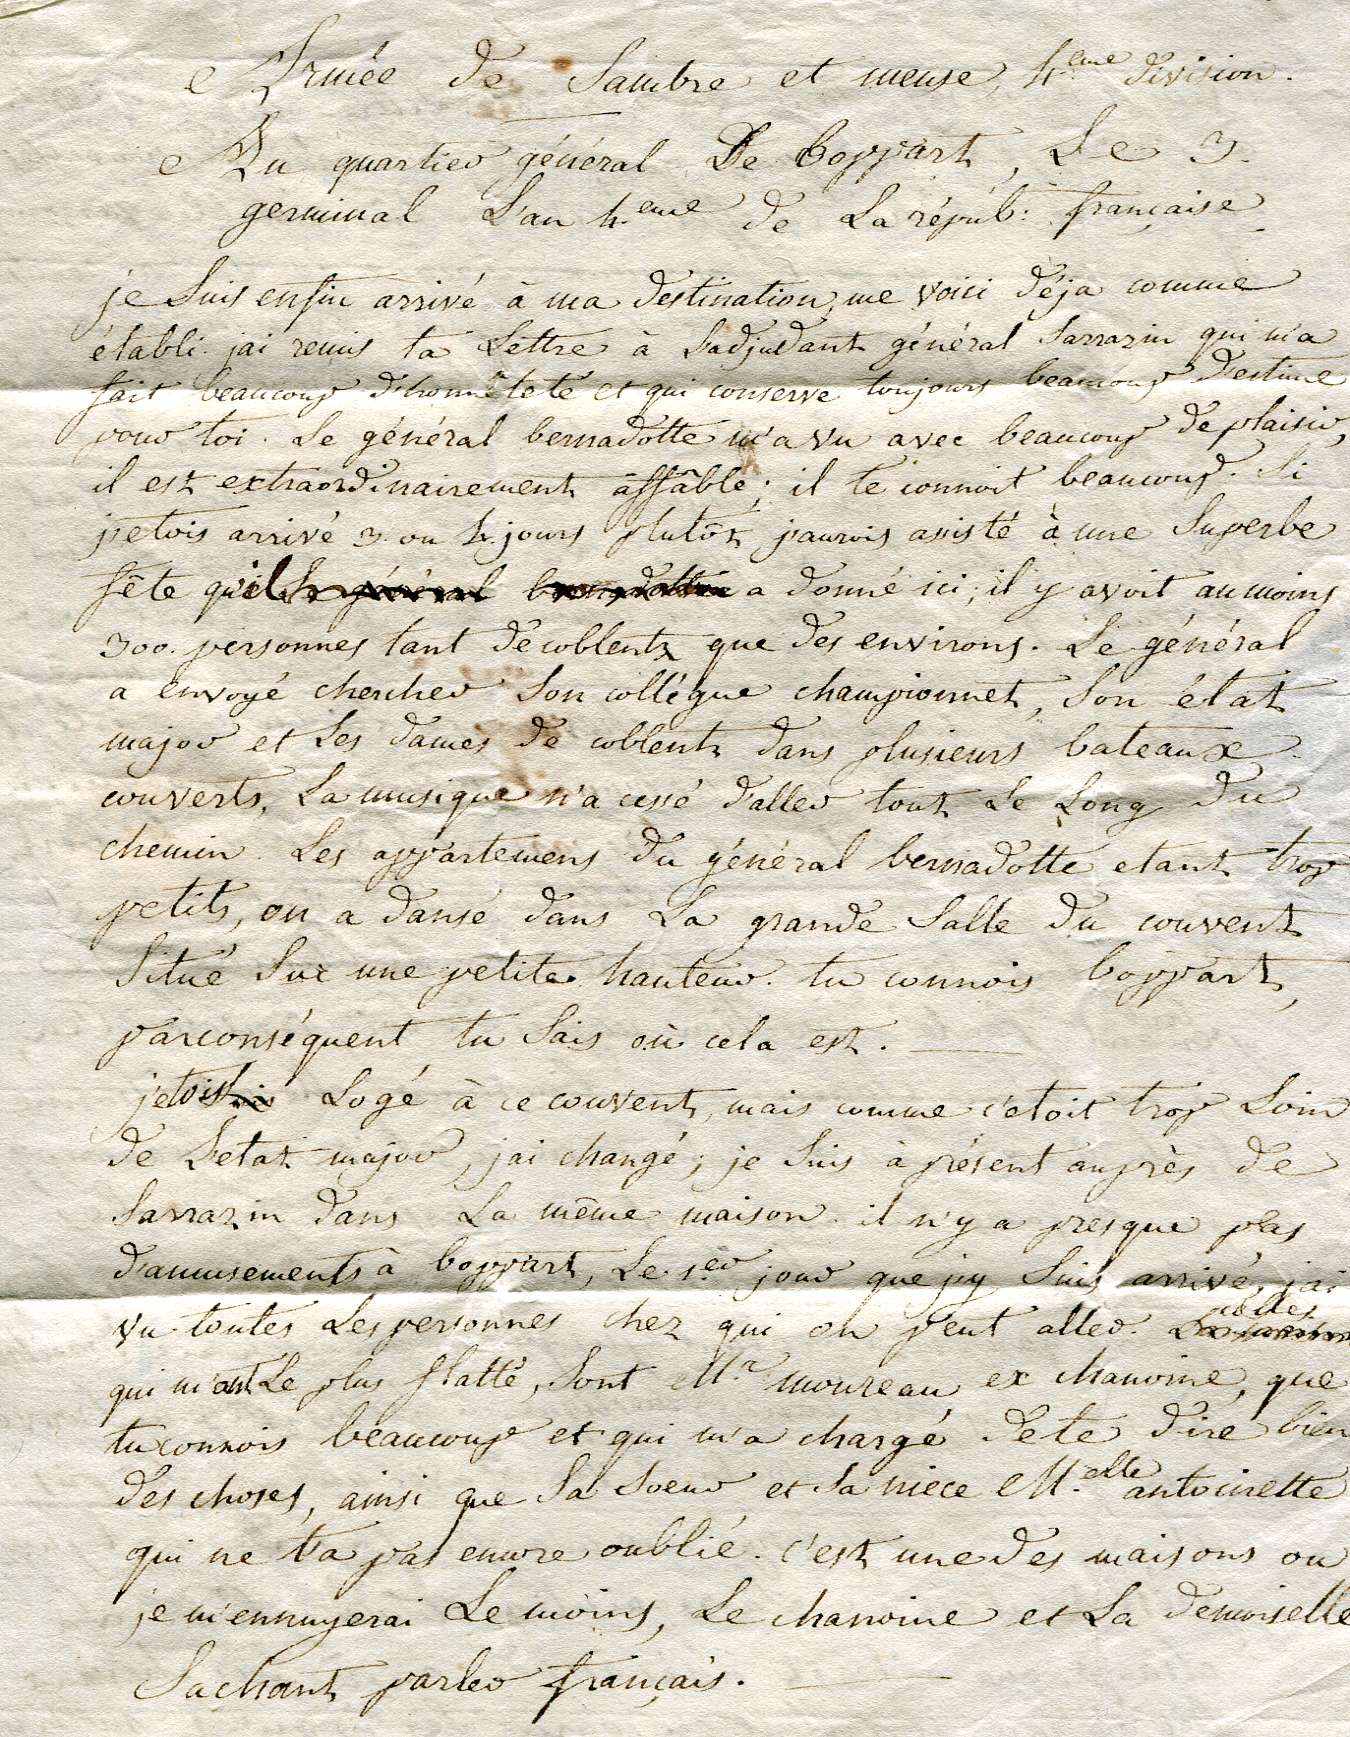 Armée de Sambre et meuse, 4.eme division.
Au quartier général De boppart, Le 3.
germinal L'an 4.eme de La répub: française.
je Suis enfin arrivé à ma destination, me voici déja comme
établi. jai remis ta Lettre à Ladjudant général Sarrazin qui m'a
fait beaucoup d'honnêteté et qui conserve toujours beaucoup d'estime
pour toi. Le général bernadotte m'a vu avec beaucoup de plaisir,
il est extraordinairement âffâble; il te connoit beaucoup. Si
jetois arrivé 3. ou 4. jours plutôt jaurois assisté à une Superbe
fête qu'il Le général bernadotte a donné ici; il y avoit aumoins
300. personnes tant de coblentz que des environs. Le général
a envoyé chercher Son collégue championnet, Son état
major et Les dames de coblentz dans plusieurs bateaux
couverts, La musique n'a cessé d'aller tout Le Long du
chemin. Les appartemens du général bernadotte etant trop
petits, on a dansé dans La grande Salle du couvent
Situé Sur une petite hauteur. tu connois boppart,
parconséquent tu Sais où cela est.
jetois Logé à ce couvent, mais comme c'etoit trop Loin
de Letat major, jai changé; je Suis à présent auprès de
Sarrazin dans La même maison. il n'y a presque plus
d'amusements à boppart, Le 1.er jour que jy Suis arrivé, jai
vu toutes Les personnes chez qui on peut aller. celles
qui m'ont Le plus flatté, Sont Mr. moureau ex chanoine, que
tu connois beaucoup et qui m'a chargé de te dire bien
des choses, ainsi que Sa Soeur et Sa niece M.elle antoinette
qui ne t'a pas encore oublié. c'est une des maisons ou
je m'ennuyerai Le moins, Le chanoine et La demoiselle
Sachant parler français.